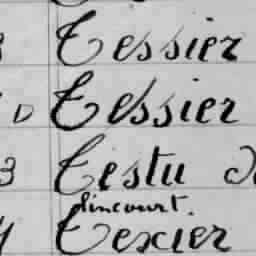 Tessier
D Tessier
3 Testu d
dincourt.
Texier